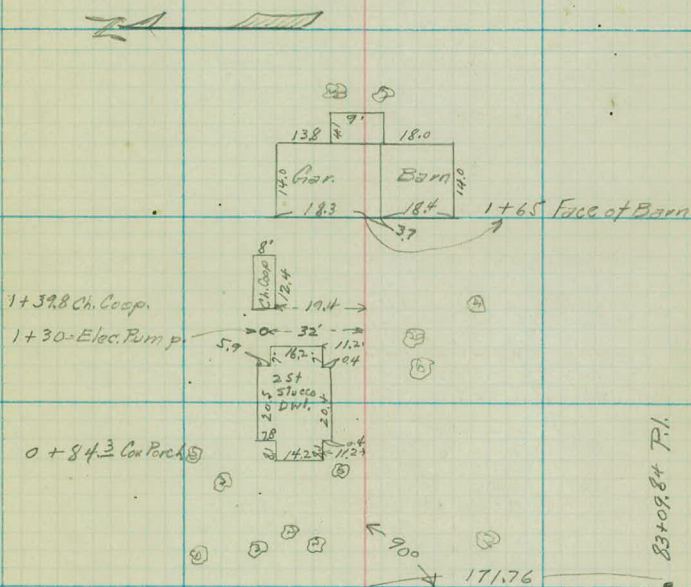 9'
13.8 41 18.0
14.0 Gar. Barn 14.0
18.3 18.4 1+65 Face of Barn
3.7
8'
Ch.Coop 12.4
1+39.8 Ch. Coop. 19.4
1+30= Elec. Pump. 32'
5.9 7. 16.2 7 11.2
0.4
2 St
Stucco
Dwl.
20.5 20.4
78 0.4
0+84.3 Con Porch 8 14.2 8 11.2
90°
171.76
83+09.84 P.I.